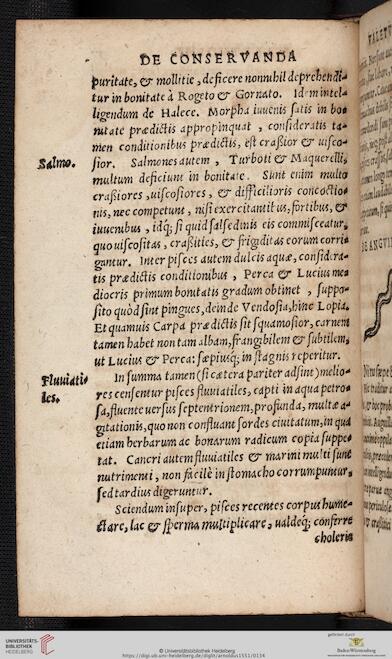 DE CONSERVANDA
puritate, & mollitie, deficere nonnihil deprehendi-
tur in bonitate à Rogeto & Gornato. Idem intel-
ligendum de Halece. Morpha iuuenis satis in bo-
nitate prædictis appropinquat, consideratis ta-
men conditionibus prædictis, est crassior & uisco-
Salmo. sior. Salmones autem, Turboti & Maquerelli,
multum deficiunt in bonitate. Sunt enim multo
crassiores, uiscosiores, & difficilioris concoctio-
nis, nec competunt, nisi exercitantibus, fortibus, &
iuuenibus, idq; si quid salsedinis eis commisceatur,
quo uiscositas, crassities, & frigiditas eorum corri-
gantur. Inter pisces autem dulcis aquæ, considera-
tis prædictis conditionibus, Perca & Lucius me-
diocris primum bonitatis gradum obtinet, suppo-
sito quòd sint pingues, deinde Vendosia, hinc Lopia.
Et quamuis Carpa prædictis sit squamosior, carnem
tamen habet non tam albam, frangibilem & subtilem,
ut Lucius & Perca: sæpiusq; in stagnis reperitur.
Fluuiati- In summa tamen (si cætera pariter adsint) melio-
les. res censentur pisces fluuiatiles, capti in aqua petro-
sa, fluente uersus septentrionem, profunda, multæ a-
gitationis, quo non confluant sordes ciuitatum, in qua
etiam herbarum ac bonarum radicum copia suppe-
tat. Cancri autem fluuiatiles & marini multi sunt
nutrimenti, non facilè in stomacho corrumpuntur,
sed tardius digeruntur.
Sciendum insuper, pisces recentes corpus hume-
ctare, lac & sperma multiplicare, ualdeq; conferre
choleris
UNIVERSITÄTS-
BIBLIOTHEK
HEIDELBERG
© Universitätsbibliothek Heidelberg
https://digi.ub.uni-heidelberg.de/diglit/arnoldus1551/0134
gefördert durch
Baden-Württemberg